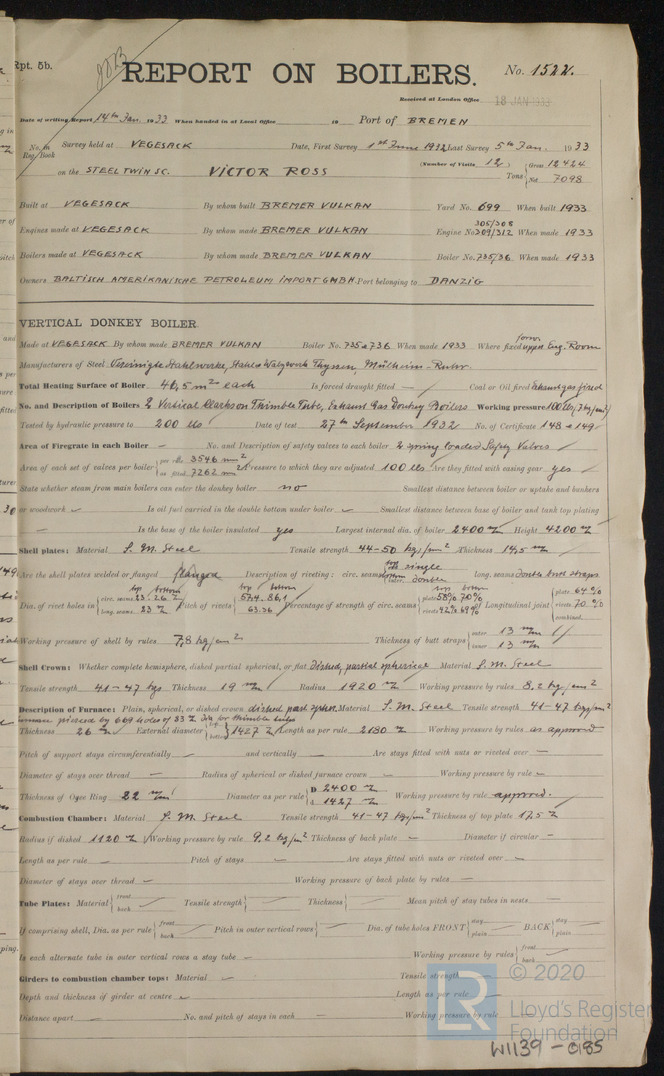 Rpt. 5b.
REPORT ON BOILERS.
No. 1522.
Received at London Office 18 JAN 1933
Date of writing Report 14th Jan. 1933 When handed in at Local Office 19 Port of BREMEN
No. in Reg. Book Survey held at VEGESACK Date, First Survey 1st June 1932 Last Survey 5th Jan. 1933
(Number of Visits 12)
on the STEEL TWIN SC. VICTOR ROSS Tons { Gross 12424 Net 7098
Built at VEGESACK By whom built BREMER VULKAN Yard No. 699 When built 1933
Engines made at VEGESACK By whom made BREMER VULKAN Engine No. 305/308 309/312 When made 1933
Boilers made at VEGESACK By whom made BREMER VULKAN Boiler No. 735/36 When made 1933
Owners BALTISCH AMERIKANISCHE PETROLEUM IMPORT GMBH. Port belonging to DANZIG
VERTICAL DONKEY BOILER.
Made at VEGESACK By whom made BREMER VULKAN Boiler No. 735 & 736 When made 1933 Where fixed upper Eng. Room
Manufacturers of Steel Vereinigte Stahlwerke, Stahl & Walzwerk Thyssen, Mülheim-Ruhr
Total Heating Surface of Boiler 46,5 m² each Is forced draught fitted — Coal or Oil fired Exhaust gas fired
No. and Description of Boilers 2 Vertical Clarkson Thimble Tube, Exhaust Gas Donkey Boilers Working pressure 100 lbs/7 kg/cm²
Tested by hydraulic pressure to 200 lbs Date of test 27th September 1932 No. of Certificate 148 & 149
Area of Firegrate in each Boiler — No. and Description of safety valves to each boiler 2 spring loaded Safety Valves
Area of each set of valves per boiler { per rule 3546 mm² as fitted 7262 m² Pressure to which they are adjusted 100 lbs Are they fitted with easing gear yes
State whether steam from main boilers can enter the donkey boiler no Smallest distance between boiler or uptake and bunkers
or woodwork Is oil fuel carried in the double bottom under boiler Smallest distance between base of boiler and tank top plating
— Is the base of the boiler insulated yes Largest internal dia. of boiler 2400 m/m Height 4200 m/m
Shell plates: Material S. M. Steel Tensile strength 44-50 kgs/mm² Thickness 14,5 m/m
Are the shell plates welded or flanged flanged Description of riveting: circ. seams top single bottom double long. seams Double butt straps
Dia. of rivet holes in { circ. seams top 23 - bottom 26 m/m long. seams 23 m/m Pitch of rivets { top 57.4 - bottom 86.1 63.36 Percentage of strength of circ. seams { top bottom plate 58% 70% rivets 42% 69% of Longitudinal joint { plate 64% rivets 70% combined
Working pressure of shell by rules 7,8 kg/cm² Thickness of butt straps { outer 13 m/m inner 13 m/m
Shell Crown: Whether complete hemisphere, dished partial spherical, or flat Dished, partial spherical Material S. M. Steel
Tensile strength 41-47 kgs Thickness 19 m/m Radius 1920 m/m Working pressure by rules 8.2 kg/cm²
Description of Furnace: Plain, spherical, or dished crown dished part spher. Material S. M. Steel Tensile strength 41-47 kgs/mm²
pierced by 609 holes of 53 m/m dia for thimble tubes
Thickness 26 m/m External diameter { top bottom 1427 m/m Length as per rule 2180 m/m Working pressure by rules as approved
Pitch of support stays circumferentially — and vertically — Are stays fitted with nuts or riveted over —
Diameter of stays over thread — Radius of spherical or dished furnace crown — Working pressure by rule —
Thickness of Ogee Ring 22 m/m Diameter as per rule { D 2400 m/m d 1427 m/m Working pressure by rule approved.
Combustion Chamber: Material S. M. Steel Tensile strength 41-47 kg/mm² Thickness of top plate 17,5 m/m
Radius if dished 1120 m/m Working pressure by rule 9.2 kg/cm² Thickness of back plate — Diameter if circular —
Length as per rule — Pitch of stays — Are stays fitted with nuts or riveted over —
Diameter of stays over thread — Working pressure of back plate by rules —
Tube Plates: Material { front back Tensile strength { Thickness { Mean pitch of stay tubes in nests —
If comprising shell, Dia. as per rule { front back Pitch in outer vertical rows { Dia. of tube holes FRONT { stay plain BACK { stay plain
Is each alternate tube in outer vertical rows a stay tube — Working pressure by rules { front back
Girders to combustion chamber tops: Material — Tensile strength —
Depth and thickness if girder at centre — Length as per rule —
Distance apart — No. and pitch of stays in each — Working pressure by rule —
LR
© 2020
Lloyd's Register
Foundation
W1139-0185